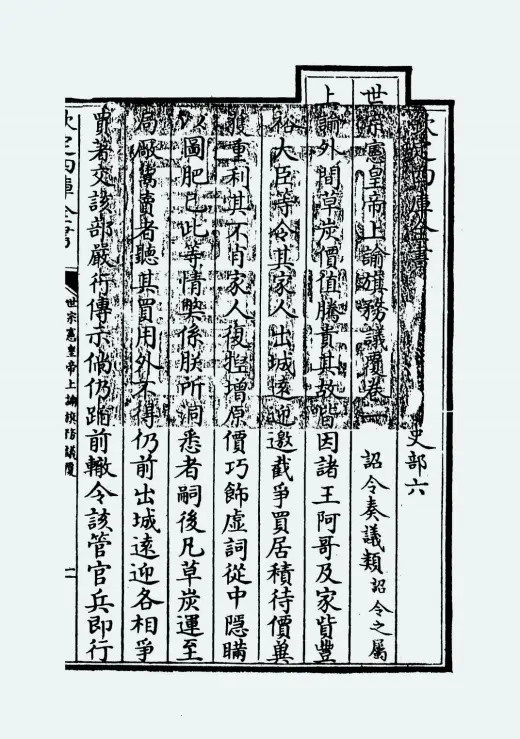 欽定四庫全書
史部六
世宗憲皇帝上諭旗務議覆卷一
詔令奏議類詔令之屬
上諭外間草炭價值騰貴其故皆因諸王阿哥及家貲豐
裕大臣等令其家人出城遠迎邀截爭買居積待價冀
獲重利其不肖家人復輕增原價巧飾虛詞從中隱瞞
以圖肥己此等情槩係朕所洞悉者嗣後凡草炭運至
局厰舊賣者聽其買用外不得仍前出城遠迎各相爭
買著交該部嚴行傳示倘仍蹈前轍令該管官兵即行
欽定四庫全書
世宗憲皇帝上諭旗務議覆